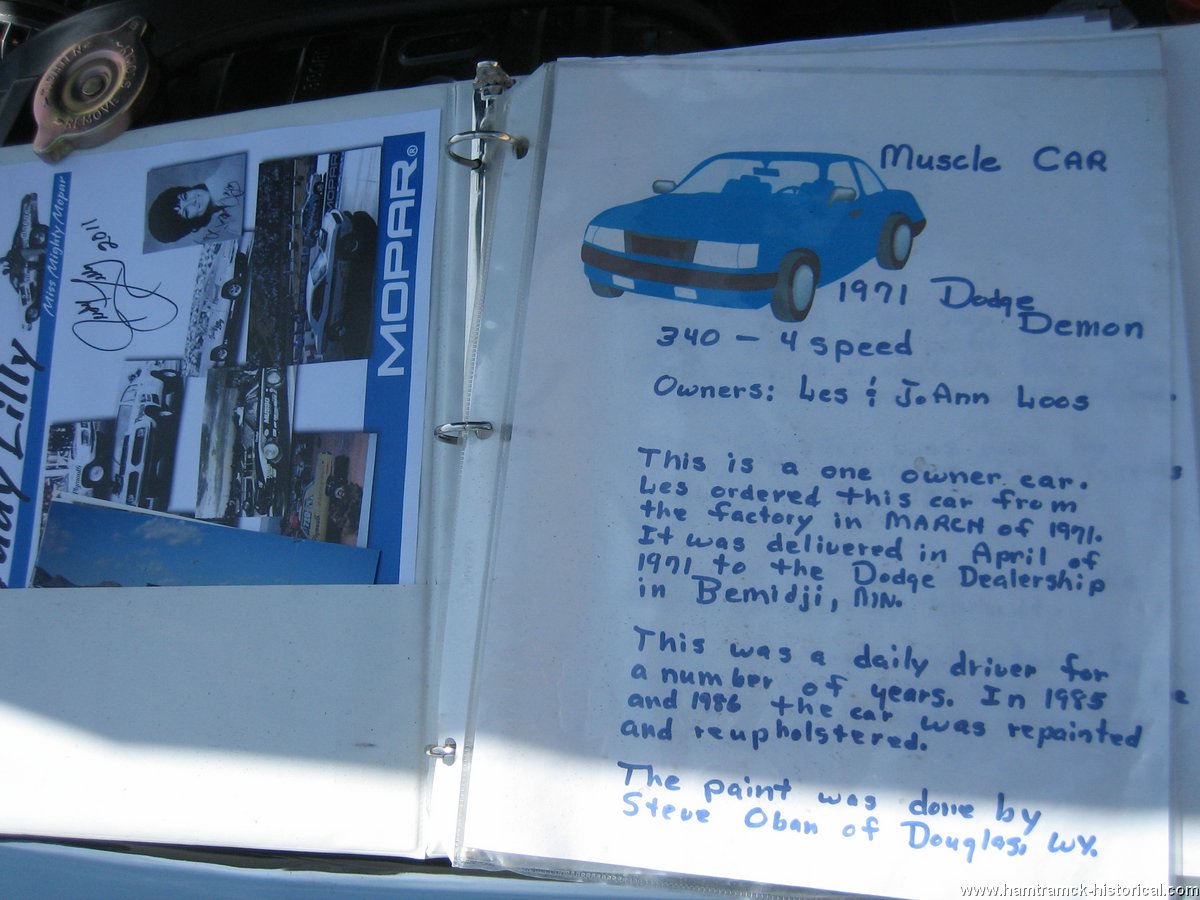 MOPAR®
Miss Mighty Mopar
2011
Lilly
REMOVE
Muscle CAR
1971 Dodge
Demon
340 - 4 speed
Owners: Les & JoAnn Loos
This is a one owner car.
Les ordered this car from
the factory in MARCH of 1971.
It was delivered in April of
1971 to the Dodge Dealership
in Bemidji, MN.
This was a daily driver for
a number of years. In 1985
and 1986 the car was repainted
and reupholstered.
The paint was done by
Steve Oban of Douglas, WY.
www.hamtramck-historical.com